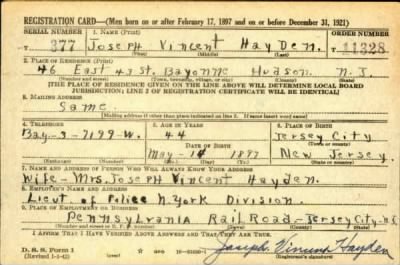 REGISTRATION CARD—(Men born on or after February 17, 1897 and on or before December 31, 1921)
SERIAL NUMBER 1. NAME (Print) ORDER NUMBER
T 377 Joseph Vincent Hayden. T 11328
(First) (Middle) (Last)
2. PLACE OF RESIDENCE (Print)
46 East 43 St. Bayonne Hudson N. J.
(Number and street) (Town, township, village, or city) (County) (State)
[THE PLACE OF RESIDENCE GIVEN ON THE LINE ABOVE WILL DETERMINE LOCAL BOARD
JURISDICTION; LINE 2 OF REGISTRATION CERTIFICATE WILL BE IDENTICAL]
3. MAILING ADDRESS
Same
[Mailing address if other than place indicated on line 2. If same insert word same]
4. TELEPHONE 5. AGE IN YEARS 6. PLACE OF BIRTH
44 Jersey City
Bay-3-7199-W. DATE OF BIRTH (Town or county)
May-14 1897 New Jersey.
(Exchange) (Number) (Mo.) (Day) (Yr.) (State or country)
7. NAME AND ADDRESS OF PERSON WHO WILL ALWAYS KNOW YOUR ADDRESS
Wife-Mrs. Joseph Vincent Hayden.
8. EMPLOYER'S NAME AND ADDRESS
Lieut. of Police N.York Division.
9. PLACE OF EMPLOYMENT OR BUSINESS
Pennsylvania RailRoad-Jersey City-N.J.
(Number and street or R. F. D. number) (Town) (County) (State)
I AFFIRM THAT I HAVE VERIFIED ABOVE ANSWERS AND THAT THEY ARE TRUE.
D. S. S. Form 1
(Revised 1-1-42) (over)
Joseph Vincent Hayden